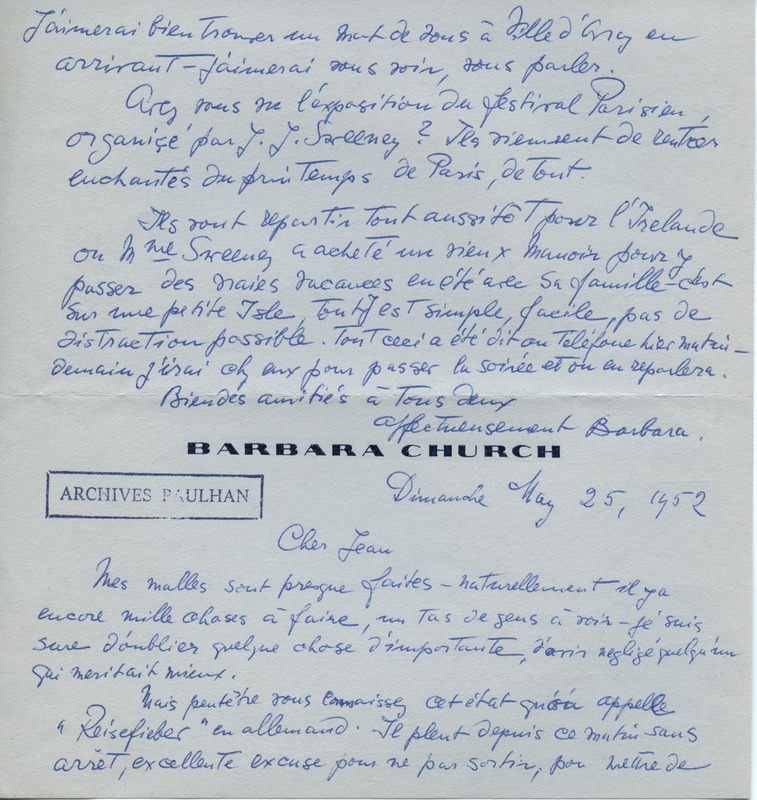 J'aimerai bien trouver un mot de vous à Ville d'Avray en
arrivant – j'aimerai vous voir, vous parler.
Avez vous vu l'exposition du festival Parisien,
organisé par J. J. Sweeney? Ils viennent de rentrer
enchantés du printemps de Paris, de tout.
Ils vont repartir tout aussitôt pour l'Irelande
ou Mme Sweeney a acheté un vieux manoir pour y
passer des vraies vacances en été avec sa famille – c'est
sur une petite Isle, tout y est simple, facile, pas de
distraction possible. Tout ceci a été dit au Téléfone hier matin –
demain j'irai ch eux pour passer la soirée et on en reparlera.
Biendes amitiés à Tous deux
affectueusement Barbara.
BARBARA CHURCH
ARCHIVES PAULHAN
Dimanche May 25, 1952
Cher Jean
Mes malles sont presque faites – naturellement il y a
encore mille choses à faire, un tas de gens à voir – je suis
sure d'oublier quelque chose d'importante, d'avoir negligé quelqu'un
qui meritait mieux.
Mais peutêtre vous connaissez cet état qu'on appelle
"Reisefieber" en allemand. Il pleut depuis ce matin sans
arrêt, excellente excuse pour ne pas sortir, pour mettre de